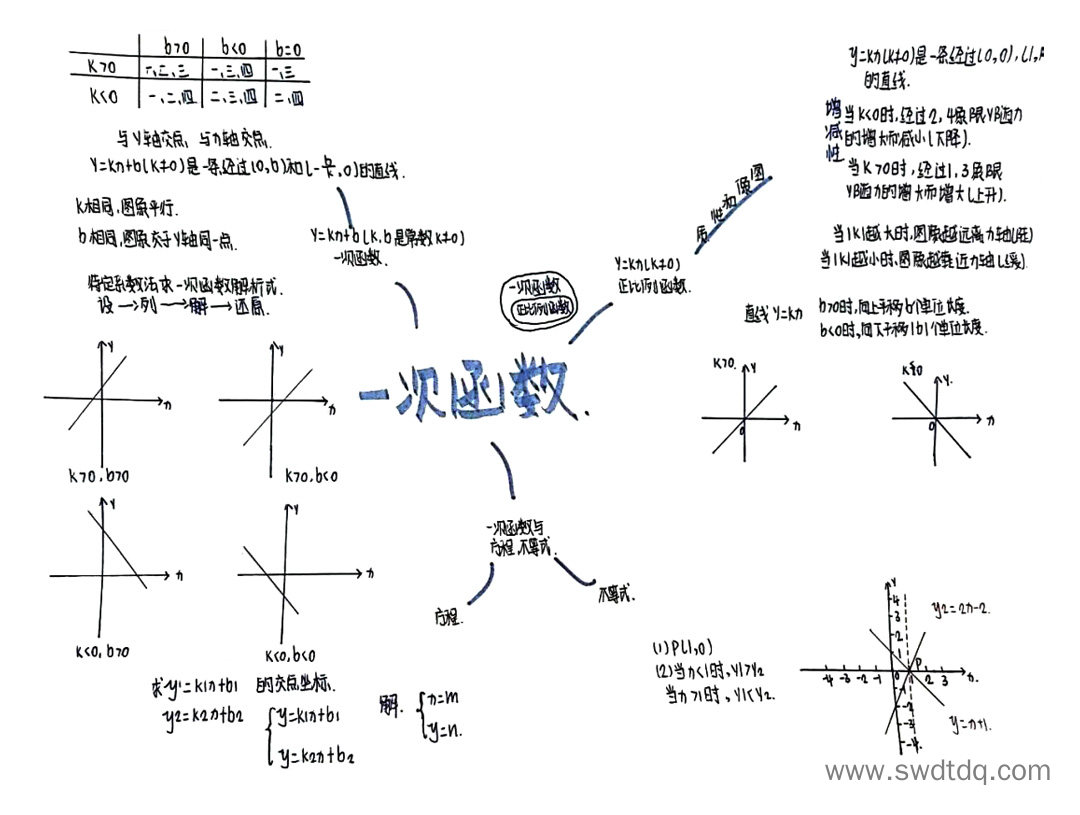 b>0 b<0 b=0
K>0 一,二,三 一,三,四 一,三
K<0 一,二,四 二,三,四 二,四
与y轴交点, 与x轴交点.
y=kx+b(k≠0)是一条经过(0,b)和(-b/k,0)的直线.
k相同,图象平行.
b相同,图象交于y轴同一点.
待定系数法求一次函数解析式.
设→列→解→还原.
y=kx+b(k,b是常数k≠0)
一次函数.
一次函数
正比例函数
一次函数.
y=kx(k≠0)
正比例函数.
图象和性质
y=kx(k≠0)是一条经过(0,0),(1,k
的直线.
增减性
当k<0时,经过2,4象限y随x
的增大而减小(下降).
当k>0时,经过1,3象限
y随x的增大而增大(上升).
当|k|越大时,图象越远离x轴(陡)
当|k|越小时,图象越靠近x轴(缓).
直线y=kx
b>0时,向上平移b个单位长度.
b<0时,向下平移|b|个单位长度.
k>0.
y
x
0
y.
x
0
y
x
k>0,b>0
y
x
k>0,b<0
y
x
k<0,b>0
y
x
k<0,b<0
一次函数与
方程,不等式.
方程.
不等式.
求y1=k1x+b1 的交点坐标.
y2=k2x+b2
y=k1x+b1
y=k2x+b2
解.
x=m
y=n.
(1)P(1,0)
(2)当x<1时,y1>y2
当x>1时,y1<y2.
y
4
3
2
1
y2=2x-2.
P
-4 -3 -2 -1 0 1 2 3 x.
-1
-2
-3
-4
y=-x+1.
www.swdtdq.com